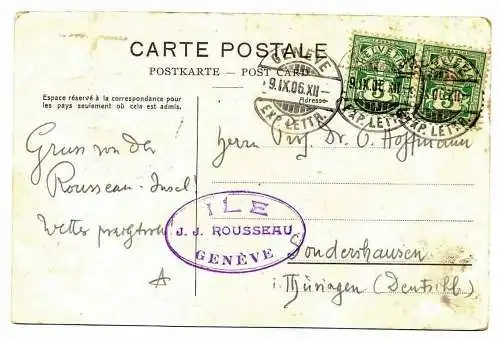 CARTE POSTALE
POSTKARTE — POST CARD
Espace réservé à la correspondance pour
les pays seulement où cela est admis.
Adresse
GENÈVE
9.IX.06.XII
EXP. LETTR.
HELVETIA
9.IX.06.XII
EXP. LETTR.
HELVETIA
5
EXP. LETTR.
Gruss von der
Rousseau-Insel!
Wetter prachtvoll
A
Herrn Prof. Dr. O. Hoffmann
ILE
J. J. ROUSSEAU
GENÈVE
Sondershausen
i. Thüringen (Deutschl.)